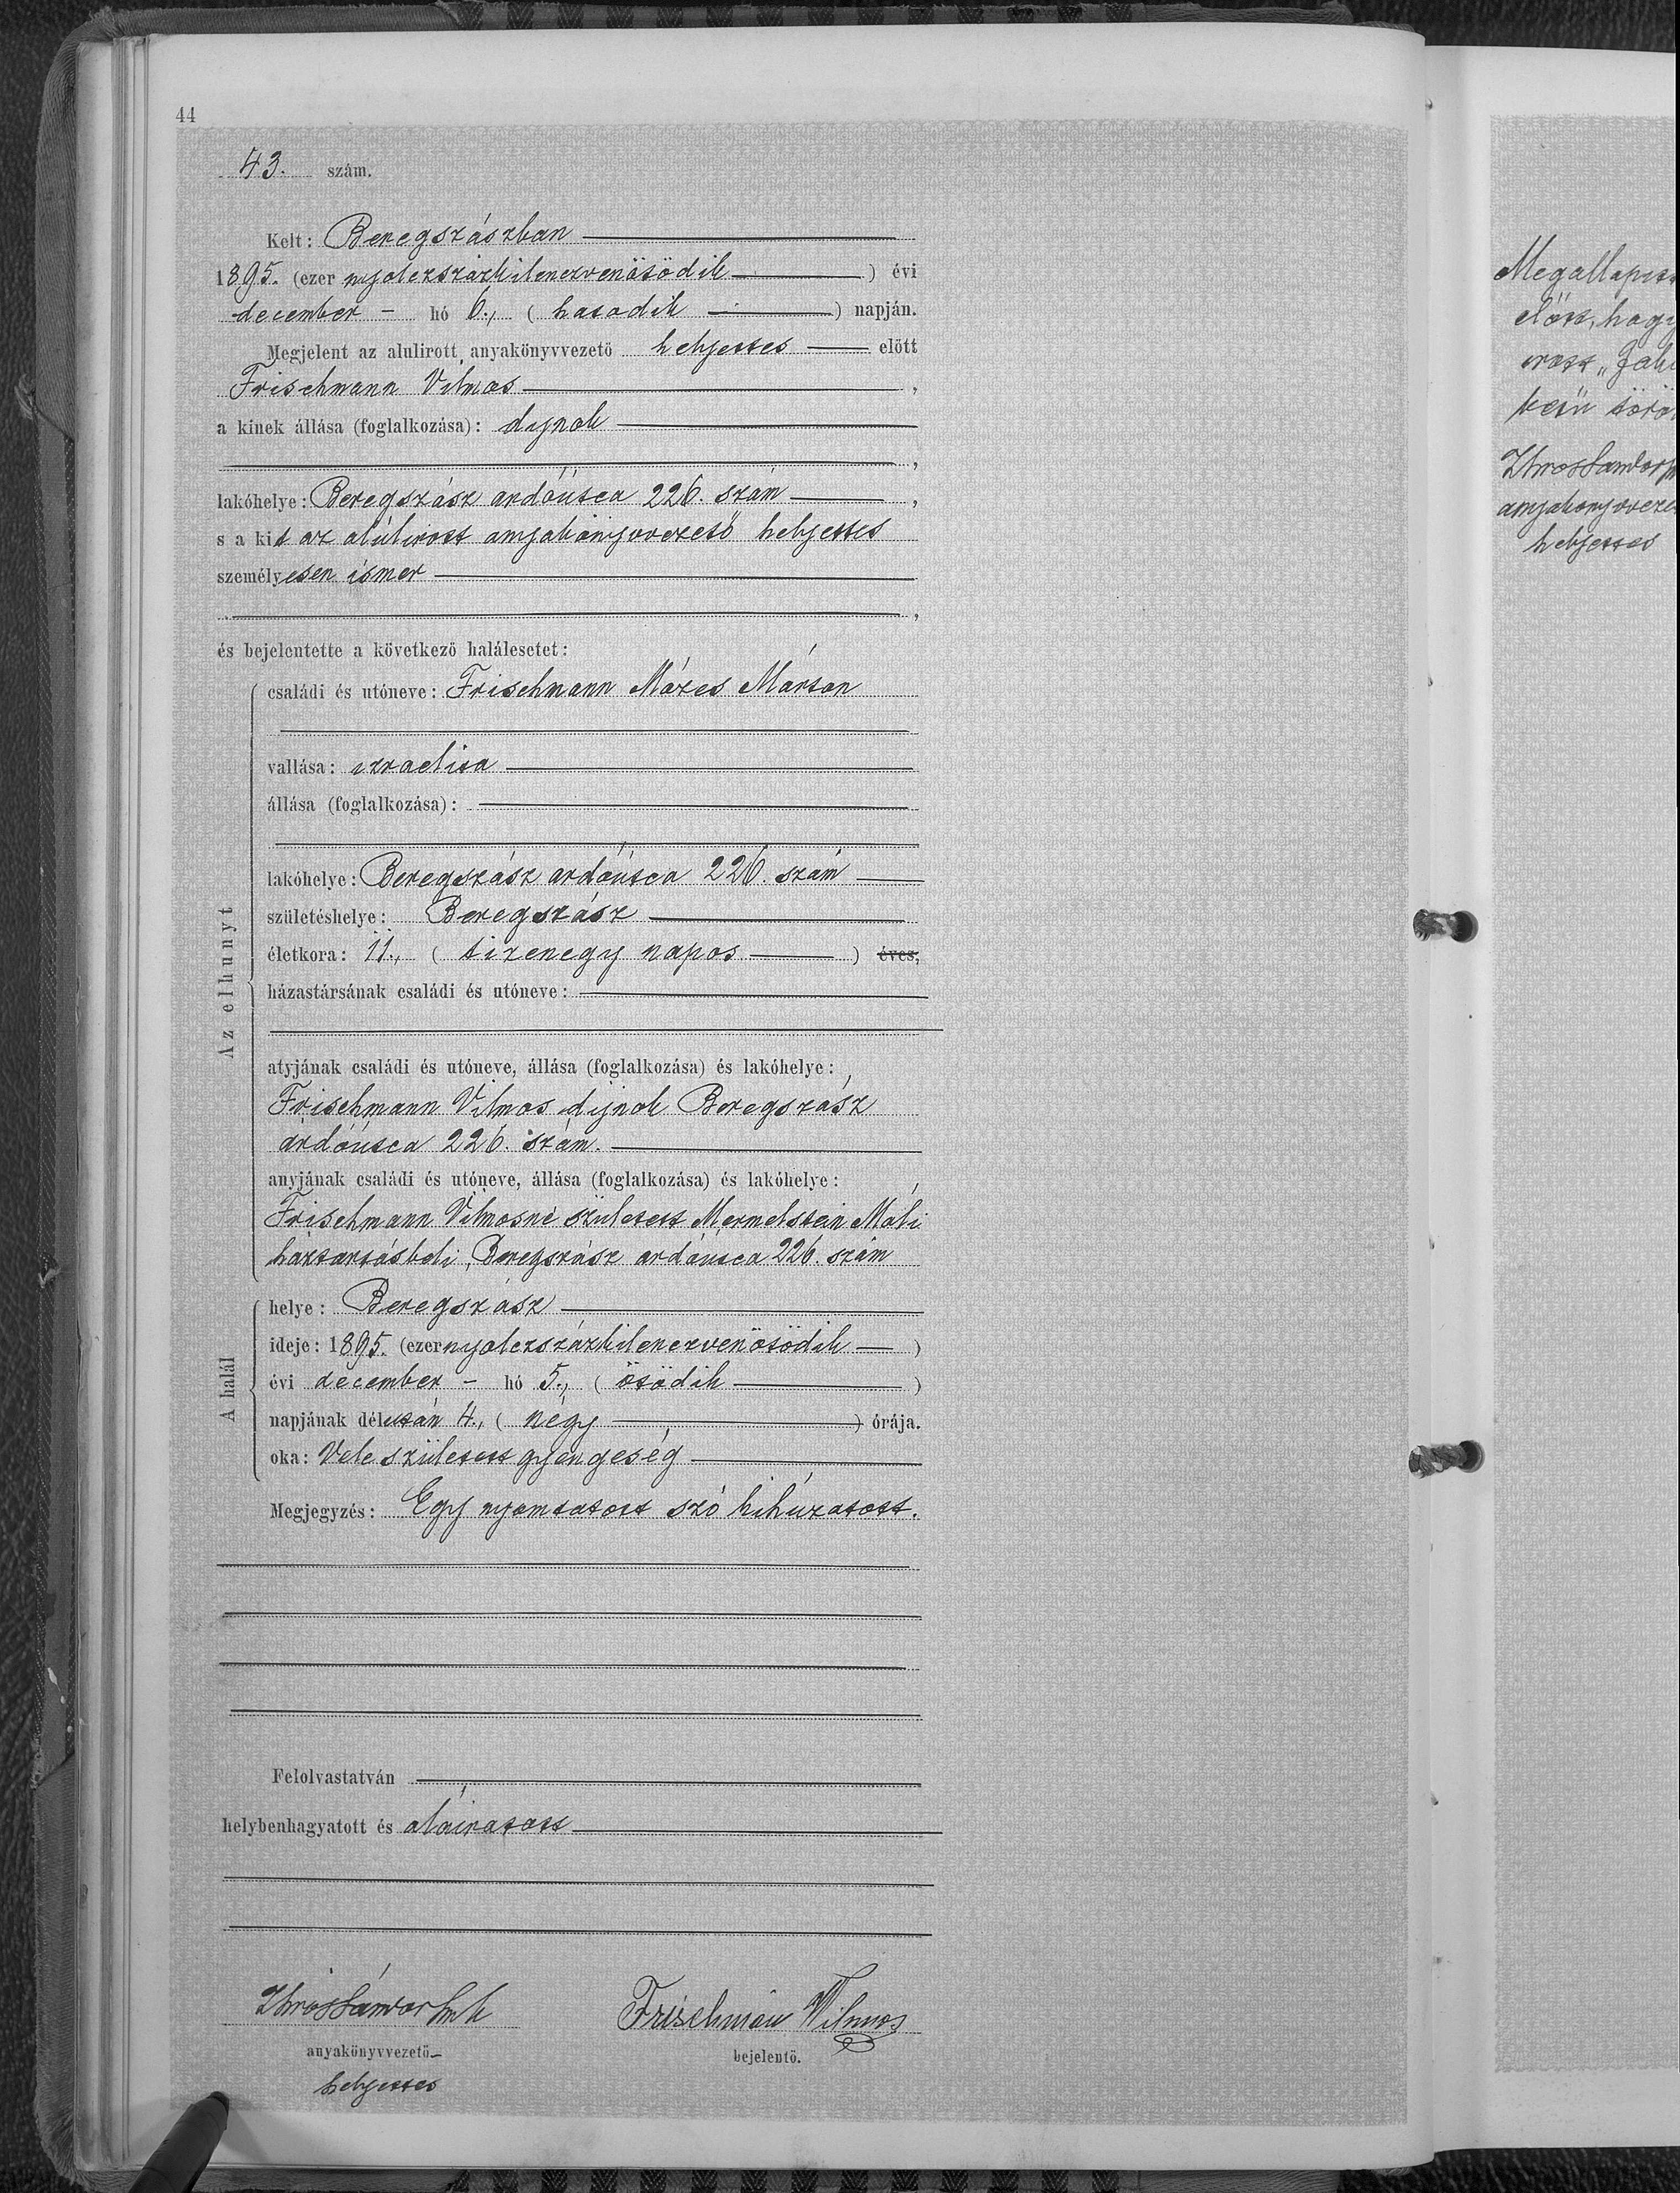 44
43. szám.
Kelt: Beregszászban
1895. (ezer nyolczszázkilenczvenötödik) évi
december - hó 6., (hatodik) napján.
Megjelent az alulirott anyakönyvvezető helyettes előtt
Frischmann Vilmos,
a kinek állása (foglalkozása): dijnok
,
lakóhelye: Beregszász ardóutca 226. szám,
s a kit az alúlirott anyakönyvvezető helyettes
személyesen ismer
,
és bejelentette a következő halálesetet:
Az elhunyt
családi és utóneve: Frischmann Mózes Márton
vallása: izraelita
állása (foglalkozása):
lakóhelye: Beregszász ardóutca 226. szám
születéshelye: Beregszász
életkora: 11., (tizenegy napos) éves,
házastársának családi és utóneve:
atyjának családi és utóneve, állása (foglalkozása) és lakóhelye:
Frischmann Vilmos dijnok Beregszász
ardóutca 226. szám.
anyjának családi és utóneve, állása (foglalkozása) és lakóhelye:
Frischmann Vilmosné született Mermelstein Máli
háztartásbeli, Beregszász ardóutca 226. szám
A halál
helye: Beregszász
ideje: 1895. (ezernyolczszázkilenczvenötödik)
évi december - hó 5., (ötödik)
napjának délután 4., (négy) órája.
oka: Vele született gyengeség
Megjegyzés: Egy nyomtatott szó kihúzatott.
Felolvastatván
helybenhagyatott és aláiratott
Frischman Wilmos
anyakönyvvezető
bejelentő.
helyettes
Megállapit
előtt, hogy
anyakönyvveze
helyettes